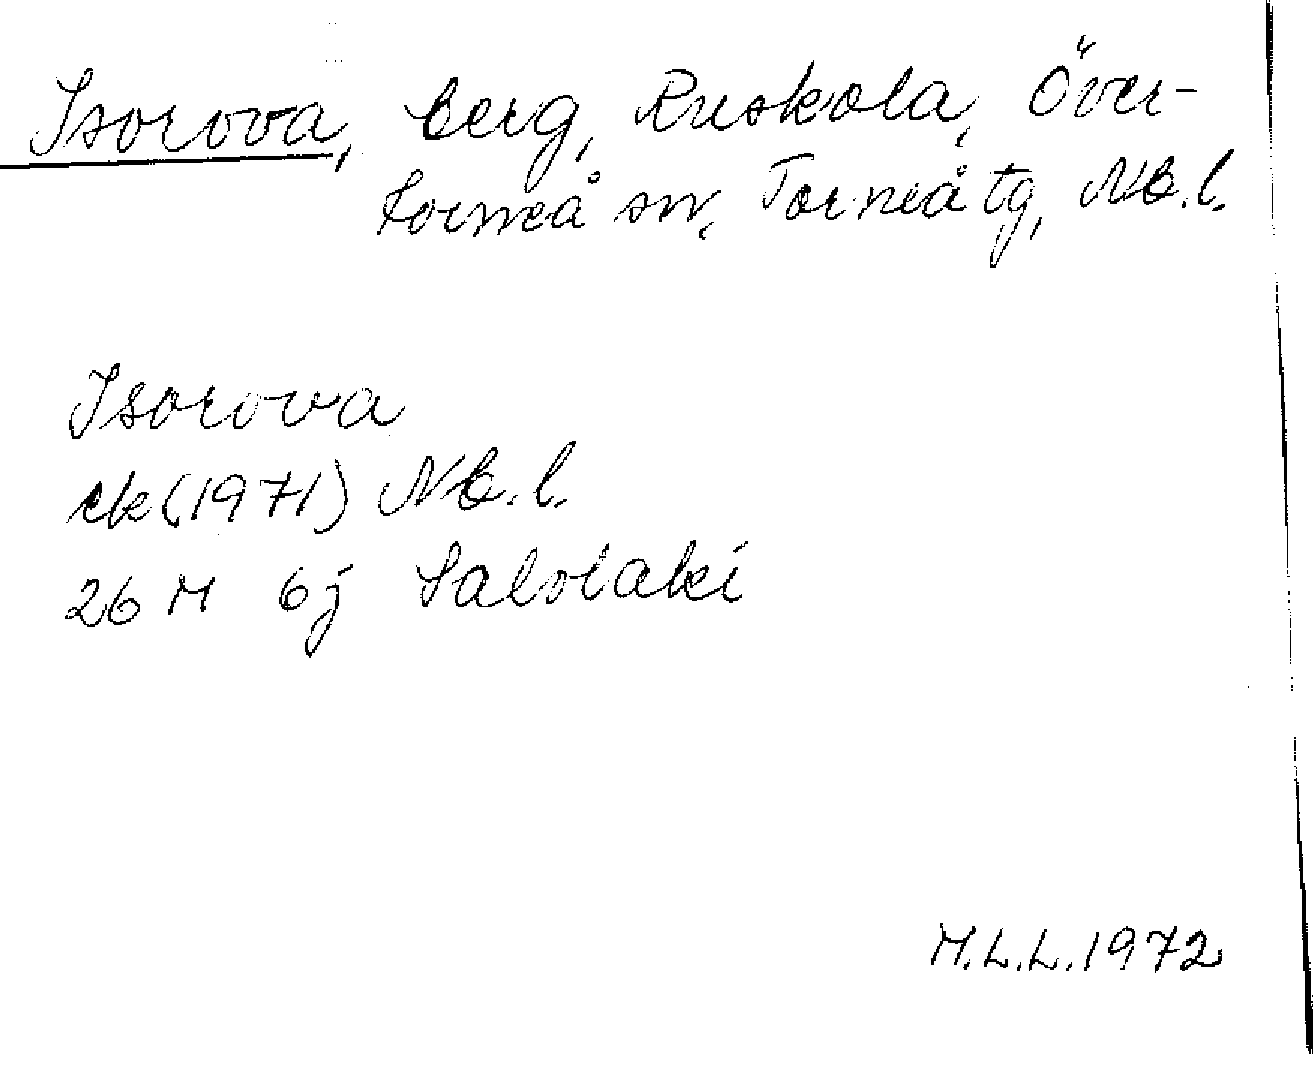 Isorova, berg, Ruskola, Över-
torneå sn, Torneå tg, Nb.l.
Isorova
ek(1971) Nb.l.
26 M 6j Salolaki
M.L.L.1972